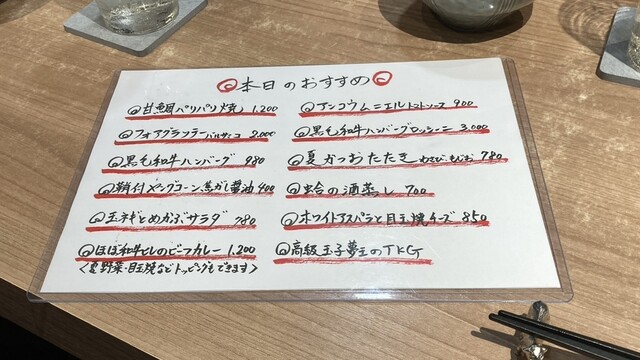 本日のおすすめ
甘鯛パリパリ焼し 1,200
フォアグラソテーバルサミコ 2,000
黒毛和牛ハンバーグ 980
鞘付ヤングコーン焦がし醤油 400
玉ネギとめかぶサラダ 780
ほぼ和牛だしのビーフカレー 1,200
<夏野菜・目玉焼などトッピングもできます>
アンコウムニエルトマトソース 900
黒毛和牛ハンバーグロッシーニ 3,000
夏かつおたたき わさび、もろみ 780
蛤の酒蒸し 700
ホワイトアスパラと目玉焼チーズ 850
高級玉子夢王のTKG